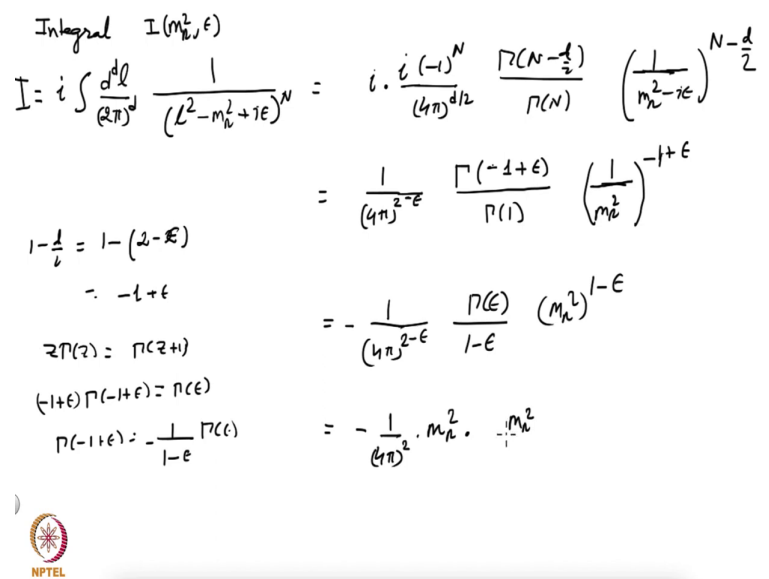 Integral I(m_r^2, ϵ)
I = i ∫ d^d l / (2π)^d 1 / (l^2 - m_r^2 + iϵ)^N = i · i (-1)^N / (4π)^{d/2} Γ(N - d/2) / Γ(N) (1 / (m_r^2 - iϵ))^{N - d/2}
= 1 / (4π)^{2-ϵ} Γ(-1+ϵ) / Γ(1) (1 / m_r^2)^{-1+ϵ}
1 - d/2 = 1 - (2 - ϵ)
= -1 + ϵ
= - 1 / (4π)^{2-ϵ} Γ(ϵ) / (1-ϵ) (m_r^2)^{1-ϵ}
zΓ(z) = Γ(z+1)
(-1+ϵ) Γ(-1+ϵ) = Γ(ϵ)
Γ(-1+ϵ) = - 1 / (1-ϵ) Γ(ϵ)
= - 1 / (4π)^2 · m_r^2 · m_r^2
NPTEL